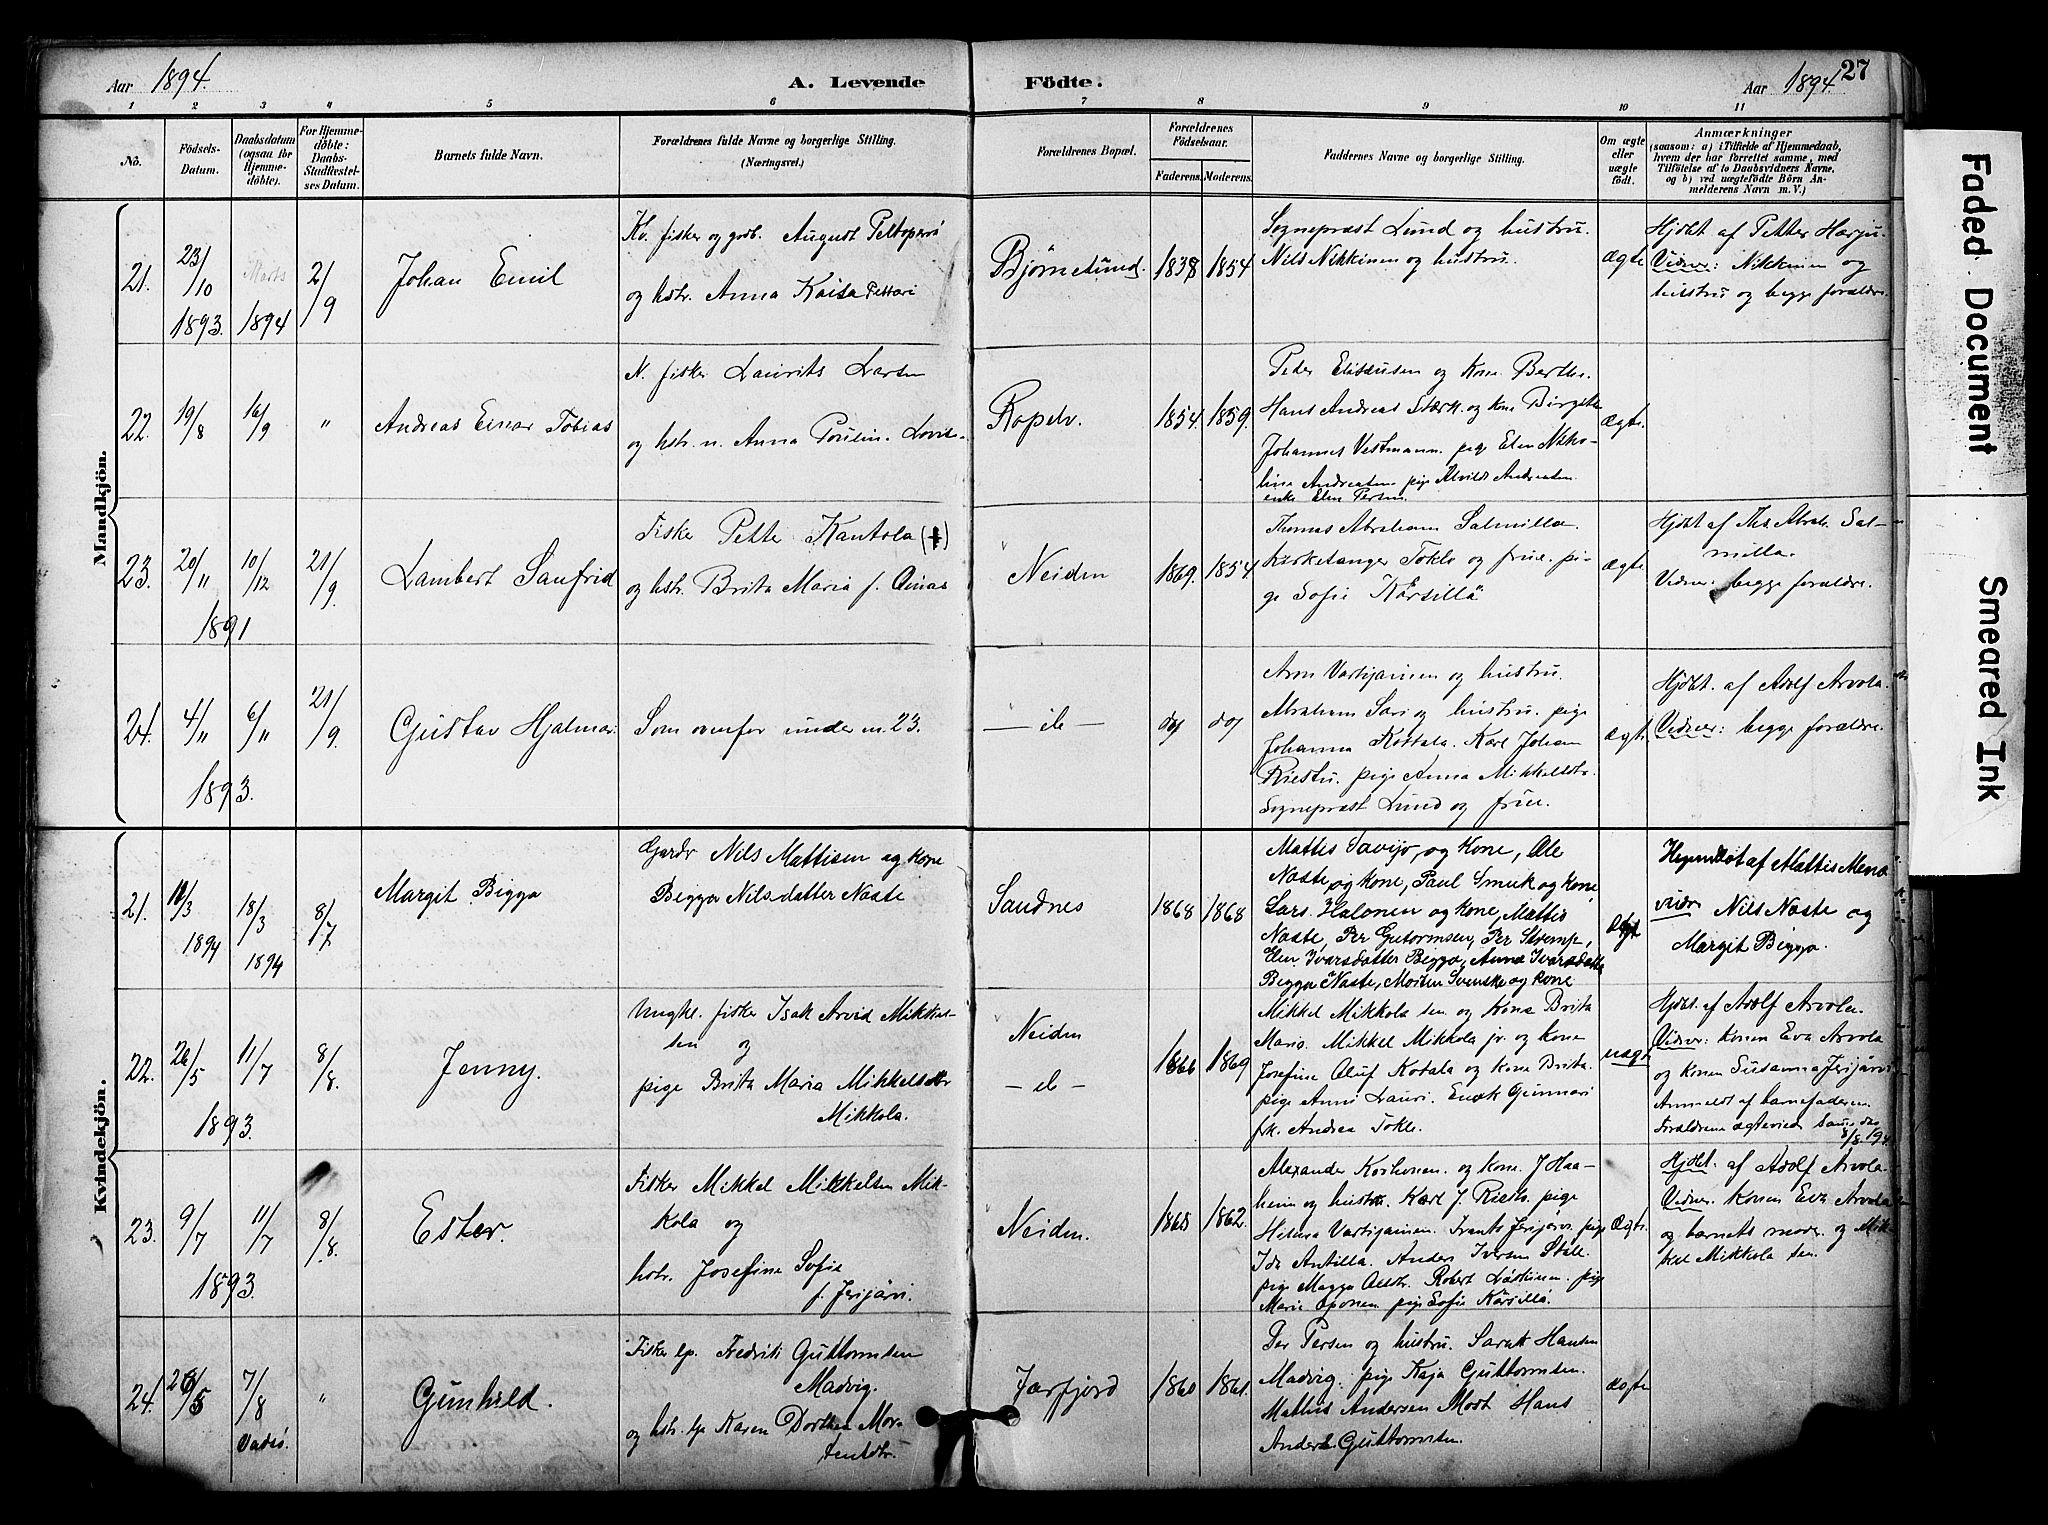 Aar 1894.
A. Levende
Födte.
Aar 1894.
27
1 2 3 4 5 6 7 8 9 10 11
No.
Födsels-
Datum.
Daabsdatum
(ogsaa for
Hjemme-
döbte).
For Hjemme-
döbte:
Daabs-
Stadfæstel-
ses Datum.
Barnets fulde Navn.
Forældrenes fulde Navne og borgerlige Stilling.
(Næringsvei.)
Forældrenes Bopæl.
Forældrenes
Födselsaar.
Faderens. Moderens.
Faddernes Navne og borgerlige Stilling.
Om ægte
eller
uægte
födt.
Anmærkninger
(saasom: a) i Tilfælde af Hjemmedaab,
hvem der har forrettet samme, med
Tilföielse af to Daabsvidners Navne,
og b) ved uægtefödte Börn An-
melderens Navn m. V.)
Mandkjön.
21.
23/10
1893.
Marts
1894
2/9
Johan Emil
Kv. fisker og grdb. August Peltoperä
og hstr. Anna Kaisa Pettari
Björnesund.
1838 1854
Sognepræst Lund og hustru.
Nils Nikkinen og hustru.
ægte
Hjdbt af Petter Harju.
Vidner: Nikkinen og
hustru og begge forældre.
22.
19/8
16/9
"
Andreas Einar Tobias
N. fisker Laurits Larsen
og hstr. n. Anna Poulin. Lovise
Ropelv.
1854. 1859.
Peder Elissusen og kone Berthe.
Hans Andreas Stærk. og kone Birgitte
Johannes Vestmann. pige Elen Niko-
line Andreasen pige Alvilde Andreasen
enke Elen Persen
Ægte.
23.
20/11
1891
10/12
21/9.
Lambert Sanfrid
Fisker Petter Kantola (+)
og hstr. Brita Maria f. Ainas
Neiden
1869. 1854
Thomas Abraham Salmilla.
kirkesanger Tokle og frue. pi-
ge Sofie Kärsillä
ægte
Hjdbt af Ths Abrah. Sal-
milla.
Vidner: begge forældre.
24.
4/11
1893.
6/11
21/9.
Gustav Hjalmar
Som ovenfor under n. 23.
— ib —
do do
Aron Vartijainen og hustru.
Abraham Sari og hustru. pige
Johanna Kottala. Karl Johan
Riestu. pige Anna Mikkelsdtr.
Sognepræst Lund og frue.
ægte
Hjdbt. af Adolf Arvola.
Vidner: begge forældre.
Kvindekjön.
21.
10/3
1894
18/3
1894
8/7
Margit Bigga
Gardr Nils Mattisen og kone
Bigga Nilsdatter Naste
Sandnes
1868 1868
Mattis Savijo, og Kone, Ole
Naste og kone, Paul Smuk og kone
Lars Halonen og kone, Mattis
Naste, Per Gutormsen, Per Stremp,
Elen Ivarsdatter Bigga, Anna Ivarsdatter
Bigga Naste, Morten Svenske og kone
Ægte
Hjemdöbt af Mattis Mena
vidn Nils Naste og
Margit Bigga.
22.
26/5
1893.
11/7
8/8.
Jenny.
Ungkl. fisker Isak Arvid Mikkel-
sen og
pige Brita Maria Mikkelsdtr
Mikkola.
Neiden
— ib —
1866 1869
Mikkel Mikkola sen og kone Brita
Maria. Mikkel Mikkola jr. og kone
Josefine Oluf Kotala og kone Brita.
pige Anni Lauri. Enok Gunnari
frk. Andrea Tokle.
uægte
Hjdbt. af Adolf Arvola.
Vidner: konen Eva Arvola
og konen Susanna Jerijärvi
Anmeldt af barnefaderen
Forældrene ægteviet samme dag
8/8. 94.
23.
9/7
1893.
11/7
8/8.
Ester.
Fisker Mikkel Mikkelsen Mik-
kola og
hstr. Josefine Sofie
f. Jerijärvi.
Neiden.
1865 1862.
Alexander Korhonen. og kone. J Haa-
heim og hustru. Karl J. Riesto. pige
Helena Vartijainen. Frants Jerijärvi pige
Ida Antilla. Anders Iversen Still.
pige Magga Olsdtr. Robert Lästinen. pige
Marie Oponen pige Sofie Kärsillä.
Ægte.
Hjdbt. af Adolf Arvola.
Vidner. konen Eva Arvola
og barnets moder og Mik-
kel Mikkola sen.
24.
26/5
7/8
Vadsö.
"
Gunhild.
Fisker lp. Fredrik Guttormsen
Madvig.
og hstr. lp Karen Dorthea Mor-
tensdtr.
Jarfjord
1860 1861.
Per Persen og hustru. Sarak Hansen
Madvig. pige Kaja Guttormsen.
Mathis Andersen Mort Hans
Anders Guttormsen.
ægte
Faded Document
Smeared Ink